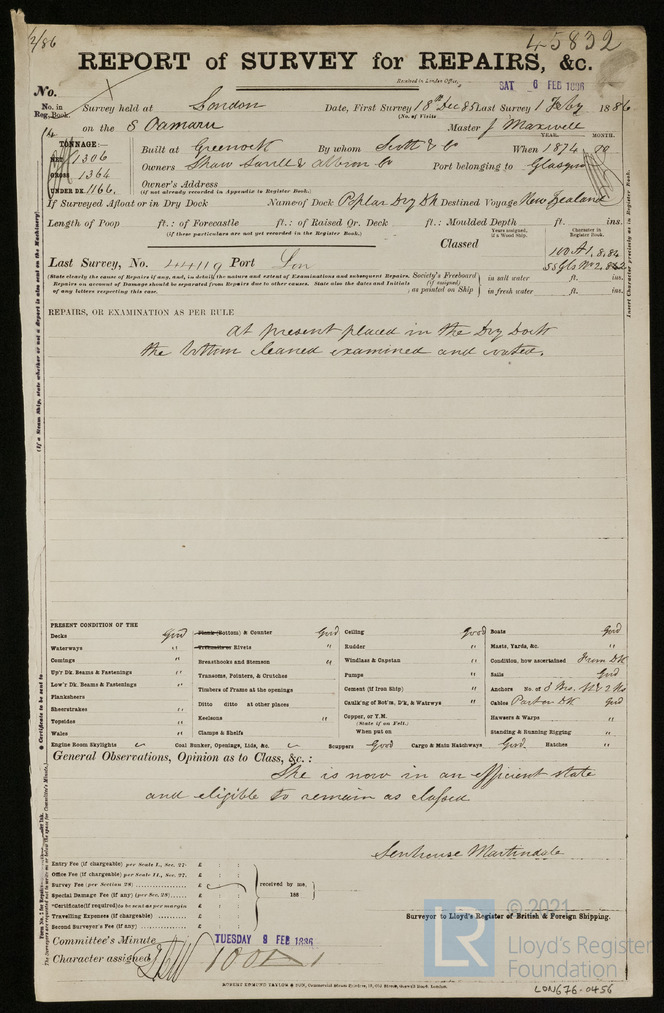 2/86
45832
REPORT of SURVEY for REPAIRS, &c.
Received in London Office, SAT 6 FEB 1886
No.
No. in Reg. Book. Survey held at London Date, First Survey 18th Dec 85 Last Survey 1 Feby 1886
(No. of Visits
on the S Oamaru Master J Maxwell
TONNAGE:— YEAR. MONTH.
NET 1306 Built at Greenock By whom Scott & Co When 1874 10
GROSS 1364 Owners Shaw Savill & Albion Co Port belonging to Glasgow
UNDER DK. 1166. Owner's Address
(if not already recorded in Appendix to Register Book.)
If Surveyed Afloat or in Dry Dock Name of Dock Poplar Dry Dk Destined Voyage New Zealand
Length of Poop ft.: of Forecastle ft.: of Raised Qr. Deck ft.: Moulded Depth ft. ins.
(if these particulars are not yet recorded in the Register Book.)
Years assigned, if a Wood Ship.
Character in Register Book.
Classed 100 A1. 8,84
Last Survey, No. 44119 Port Lon
SS Glo No 2.
(State clearly the cause of Repairs if any, and, in detail, the nature and extent of Examinations and subsequent Repairs.
Repairs on account of Damage should be separated from Repairs due to other causes. State also the dates and Initials
of any letters respecting this case.
Society's Freeboard (if assigned) as painted on Ship
in salt water ft. ins.
in fresh water ft. ins.
Insert Character precisely as in Register Book.
(If a Steam Ship, state whether or not a Report is also sent on the Machinery)
REPAIRS, OR EXAMINATION AS PER RULE
At present placed in the Dry Dock
the bottom cleaned examined and coated.
PRESENT CONDITION OF THE
Decks Good
Waterways "
Comings "
Up'r Dk. Beams & Fastenings "
Low'r Dk. Beams & Fastenings "
Planksheers
Sheerstrakes "
Topsides "
Wales "
Plank (Bottom) & Counter Good
Treenails or Rivets "
Breasthooks and Stemson "
Transoms, Pointers, & Crutches
Timbers of Frame at the openings
Ditto ditto at other places
Keelsons "
Clamps & Shelfs
Ceiling Good
Rudder "
Windlass & Capstan "
Pumps "
Cement (if Iron Ship) "
Caulk'ng of Bot'm, D'k, & Watrwys "
Copper, or Y.M.
(State if on Felt.)
When put on
Boats Good
Masts, Yards, &c. "
Condition, how ascertained From DK
Sails Good
Anchors No. of
Cables Part on DK Good
Hawsers & Warps "
Standing & Running Rigging "
Engine Room Skylights Coal Bunker, Openings, Lids, &c. Scuppers Good Cargo & Main Hatchways Good Hatches "
General Observations, Opinion as to Class, &c.:
She is now in an efficient state
and eligible to remain as classed
Senhouse Martindale
Entry Fee (if chargeable) per Scale I., Sec. 27. £ : :
Office Fee (if chargeable) per Scale II., Sec. 27. £ : :
Survey Fee (per Section 28) £ : :
Special Damage Fee (if any) (per Sec. 28) £ : :
*Certificate (if required) to be sent as per margin £ : :
Travelling Expenses (if chargeable) £ : :
Second Surveyor's Fee (if any) £ : :
received by me,
188
Surveyor to Lloyd's Register of British & Foreign Shipping.
Committee's Minute TUESDAY 9 FEB 1886
Character assigned 100A1
ROBERT EDMUND TAYLOR & SON,
© 2021
LR
Lloyd's Register
Foundation
LON676-0456